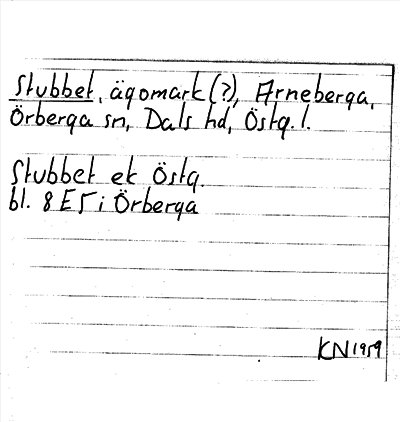 Stubbet, ägomark (?), Arneberga,
Örberga sn, Dals hd, Östg. l.
Stubbet ek Östg.
bl. 8 E 5 i Örberga
KN 1959